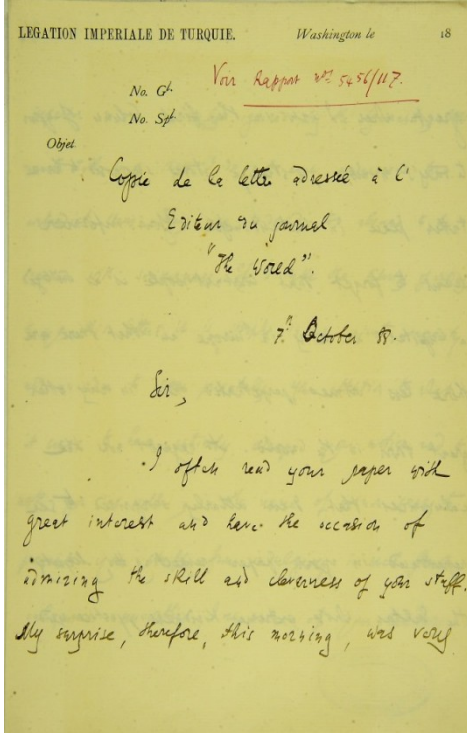 LEGATION IMPERIALE DE TURQUIE. Washington le 18
Voir Rapport Nº 5456/117.
No. Gˡ.
No. Spˡ.
Objet
Copie de la lettre adressée à l'
Editeur du journal
"The World".
7ᵗʰ October 88.
Sir,
I often read your paper with
great interest and have the occasion of
admizing the skill and cleverness of your stuff.
My surprise, therefore, this morning, was very